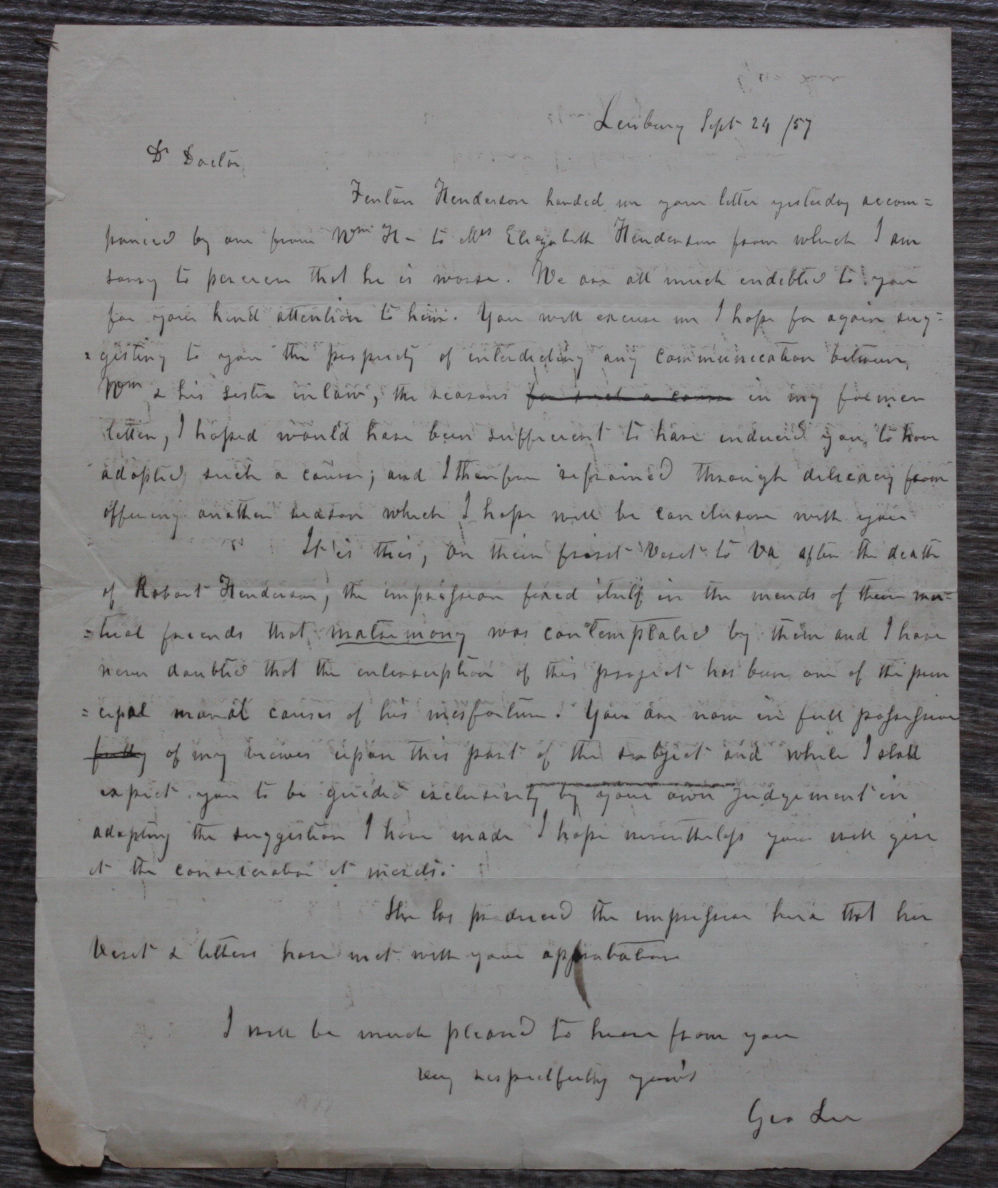 Leesburg Sept 24 /57
Dr Doctor
Fenton Henderson handed me your letter yesterday accom=
panied by one from Wm H- to Mrs Elizabeth Henderson from which I am
sorry to perceive that he is worse. We are all much endebted to you
for your kind attention to him. You will excuse me I hope for again sug=
gesting to you the propriety of interdicting any communication between
Wm & his sister in law; the reasons for such a course in my former
letter, I hoped would have been sufficient to have induced you to have
adopted such a course; and I therefore refrained through delicacy from
offering another reason which I hope will be conclusive with you
It is this, on their first visit to Va after the death
of Robert Henderson, the impression fixed itself in the minds of their mu=
=tual friends that matrimony was contemplated by them and I have
never doubted that the interruption of this project has been one of the prin
=cipal moral causes of his misfortune. You are now in full possession
fully of my views upon this part of the subject and while I shall
expect you to be guided exclusively by your own judgement in
adopting the suggestion I have made I hope nevertheless you will give
it the consideration it merits.
She has produced the impression here that her
visit & letters have met with your approbation
I will be much pleased to hear from you
very respectfully yours
Geo Lee